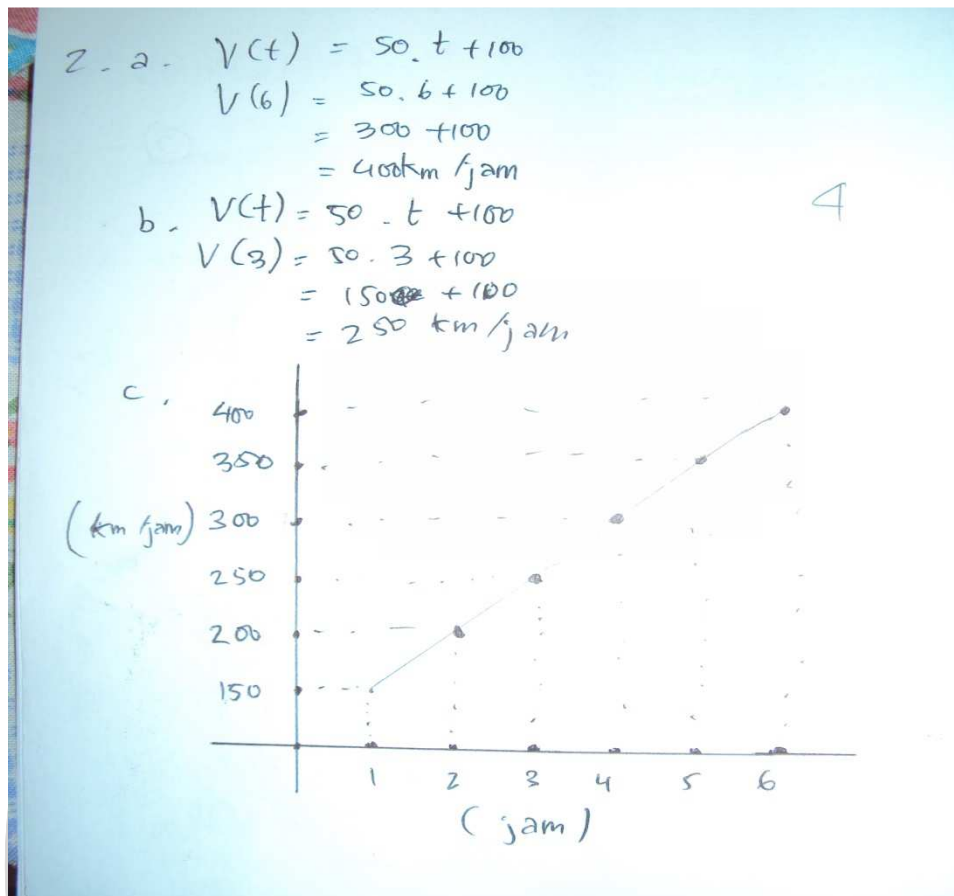 2. a. V(t) = 50. t + 100
V(6) = 50. 6 + 100
= 300 + 100
= 400km /jam
4
b. V(t) = 50 . t + 100
V(3) = 50 . 3 + 100
= 150 + 100
= 250 km /jam
c.
400
350
(km /jam) 300
250
200
150
1 2 3 4 5 6
( jam )